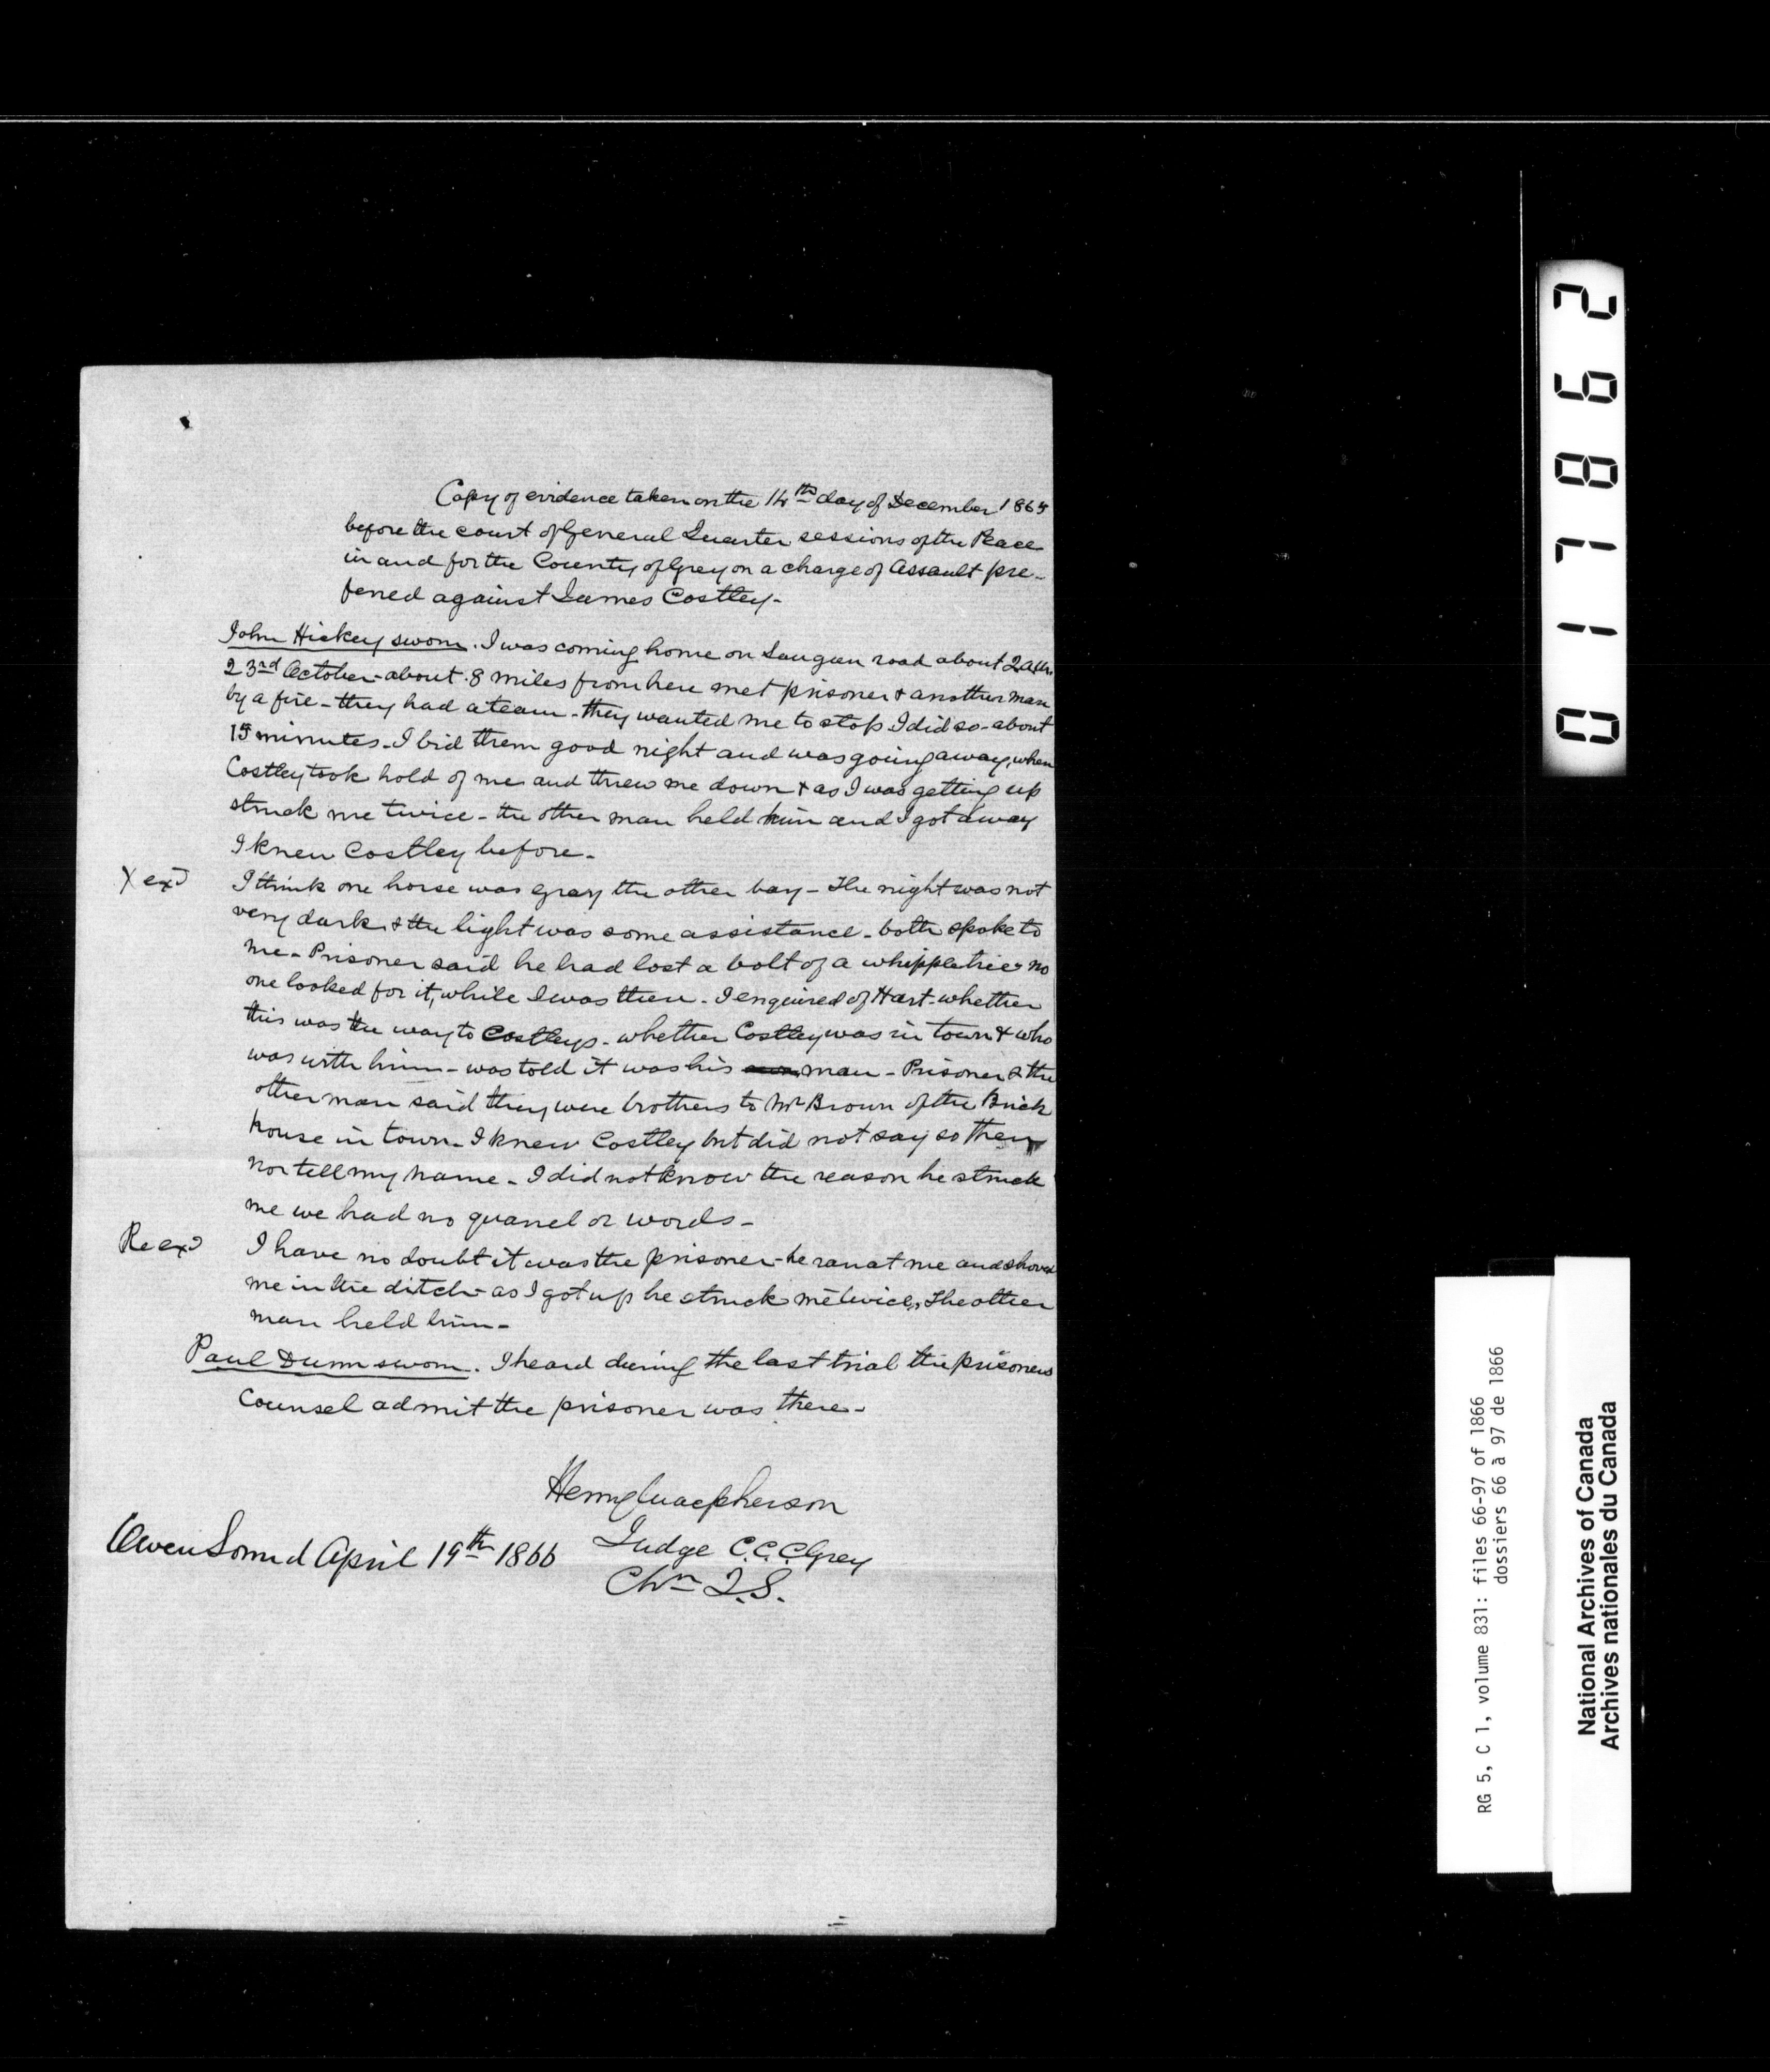 Copy of evidence taken on the 14th day of December 1865
before the court of General Quarter sessions of the Peace
in and for the County of Grey on a charge of Assault pre-
ferred against James Costley-
John Hickey sworn. I was coming home on Saugeen road about 2 a.m.
23rd October - about 8 miles from here met prisoner & another man
by a fire - they had a team - they wanted me to stop I did so - about
15 minutes - I bid them good night and was going away, when
Costley took hold of me and threw me down & as I was getting up
struck me twice - the other man held him and I got away
I knew Costley before -
X exd I think one horse was gray the other bay - The night was not
very dark & the light was some assistance - both spoke to
me - Prisoner said he had lost a bolt of a whippletree no
one looked for it, while I was there - I enquired of Hart - whether
this was the way to Costleys - whether Costley was in town & who
was with him - was told it was his man - Prisoner & the
other man said they were brothers to Mr Brown of the Brick
house in town - I knew Costley but did not say so then
nor tell my name - I did not know the reason he struck
me we had no quarrel or words -
Re exd I have no doubt it was the prisoner - he ran at me and shoved
me in the ditch - as I got up he struck me twice, The other
man held him -
Paul Dunn sworn. I heard during the last trial the prisoners
Counsel admit the prisoner was there -
Henry Macpherson
Owen Sound April 19th 1866 Judge C.C.C Grey
Chn Q.S.
017862
RG 5, C 1, volume 831: files 66-97 of 1866
dossiers 66 à 97 de 1866
National Archives of Canada
Archives nationales du Canada